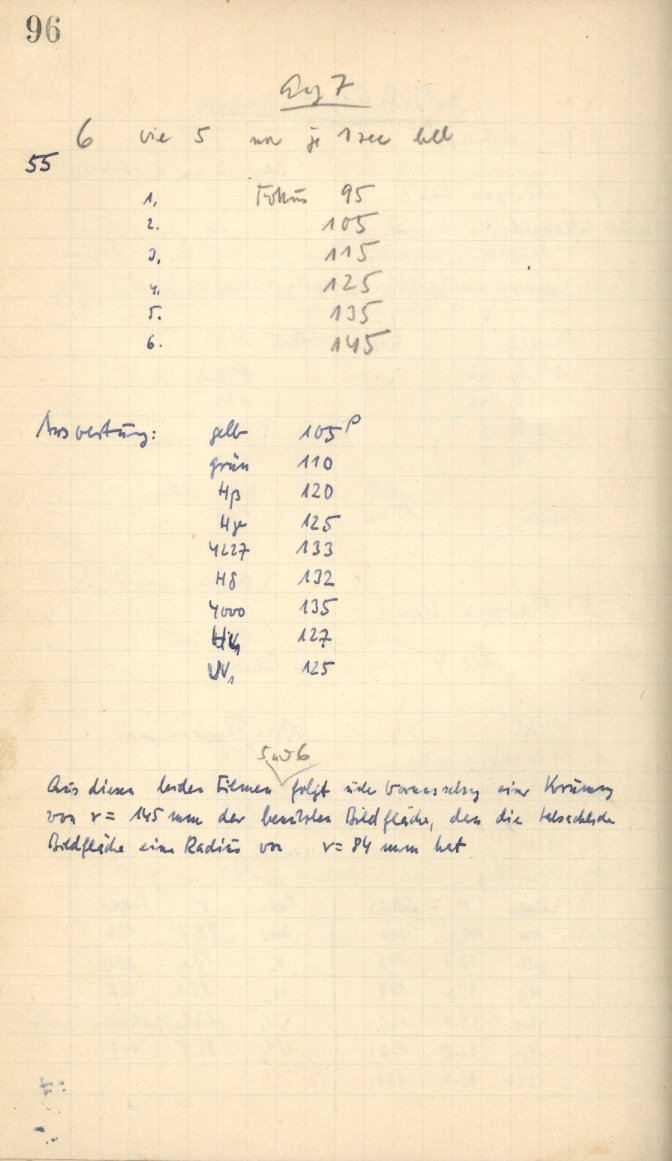 96
Aug 7
6 wie 5 nur je 1 sec hell
55
1. Fokus 95
2. 105
3. 115
4. 125
5. 135
6. 145
Auswertung: gelb 105 p
grün 110
Hβ 120
Hγ 125
4227 133
Hδ 132
4000 135
127
UV, 125
5 und 6
Aus diesen beiden Filmen folgt unter Voraussetzg einer Krümmg
von r = 145 mm der benutzten Bildfläche, dass die tatsächliche
Bildfläche einen Radius von r = 84 mm hat